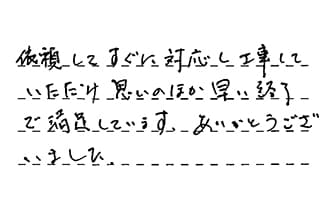 依頼してすぐに対応し工事して
いただけ思いのほか早い終了
で満足しています。ありがとうござ
いました。